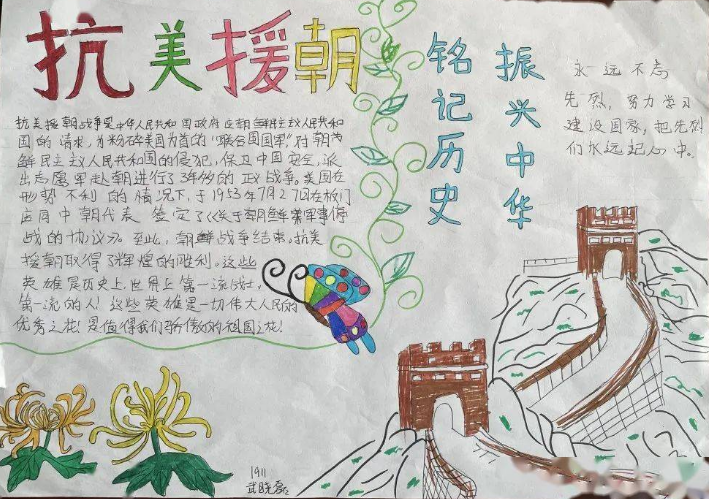 抗美援朝
抗美援朝战争是中华人民共和国政府应朝鲜民主主义人民共和
国的请求,为粉碎美国为首的"联合国国军"对朝
鲜民主主义人民共和国的侵犯,保卫中国安全,派
出志愿军赴朝进行了3年的 战争。美国在
形势不利的情况下,于1953年7月27日在板门
店同中朝代表签定了《关于朝鲜军事停
战的协议》。至此,朝鲜战争结束。抗美
援朝取得了辉煌的胜利。这些
英雄是历史上,世界上第一流战士,
第一流的人!这些英雄是一切伟大人民的
优秀之花!是值得我们骄傲的祖国之花!
铭记历史
振兴中华
永远不忘
先烈,努力学习
建设国家,把先烈
们永远记心中。
1911
武晓磊